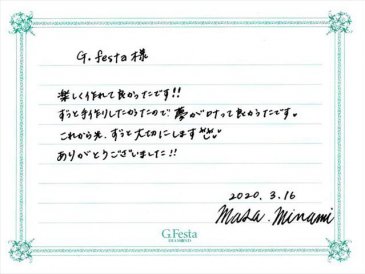 G.festa 様
楽しく作れて良かったです!!
ずっと手作りしたかったので夢が叶って良かったです。
これから先、ずっと大切にします
ありがとうございました!!
2020.3.16
Masa.Minami
G.Festa
DIAMOND